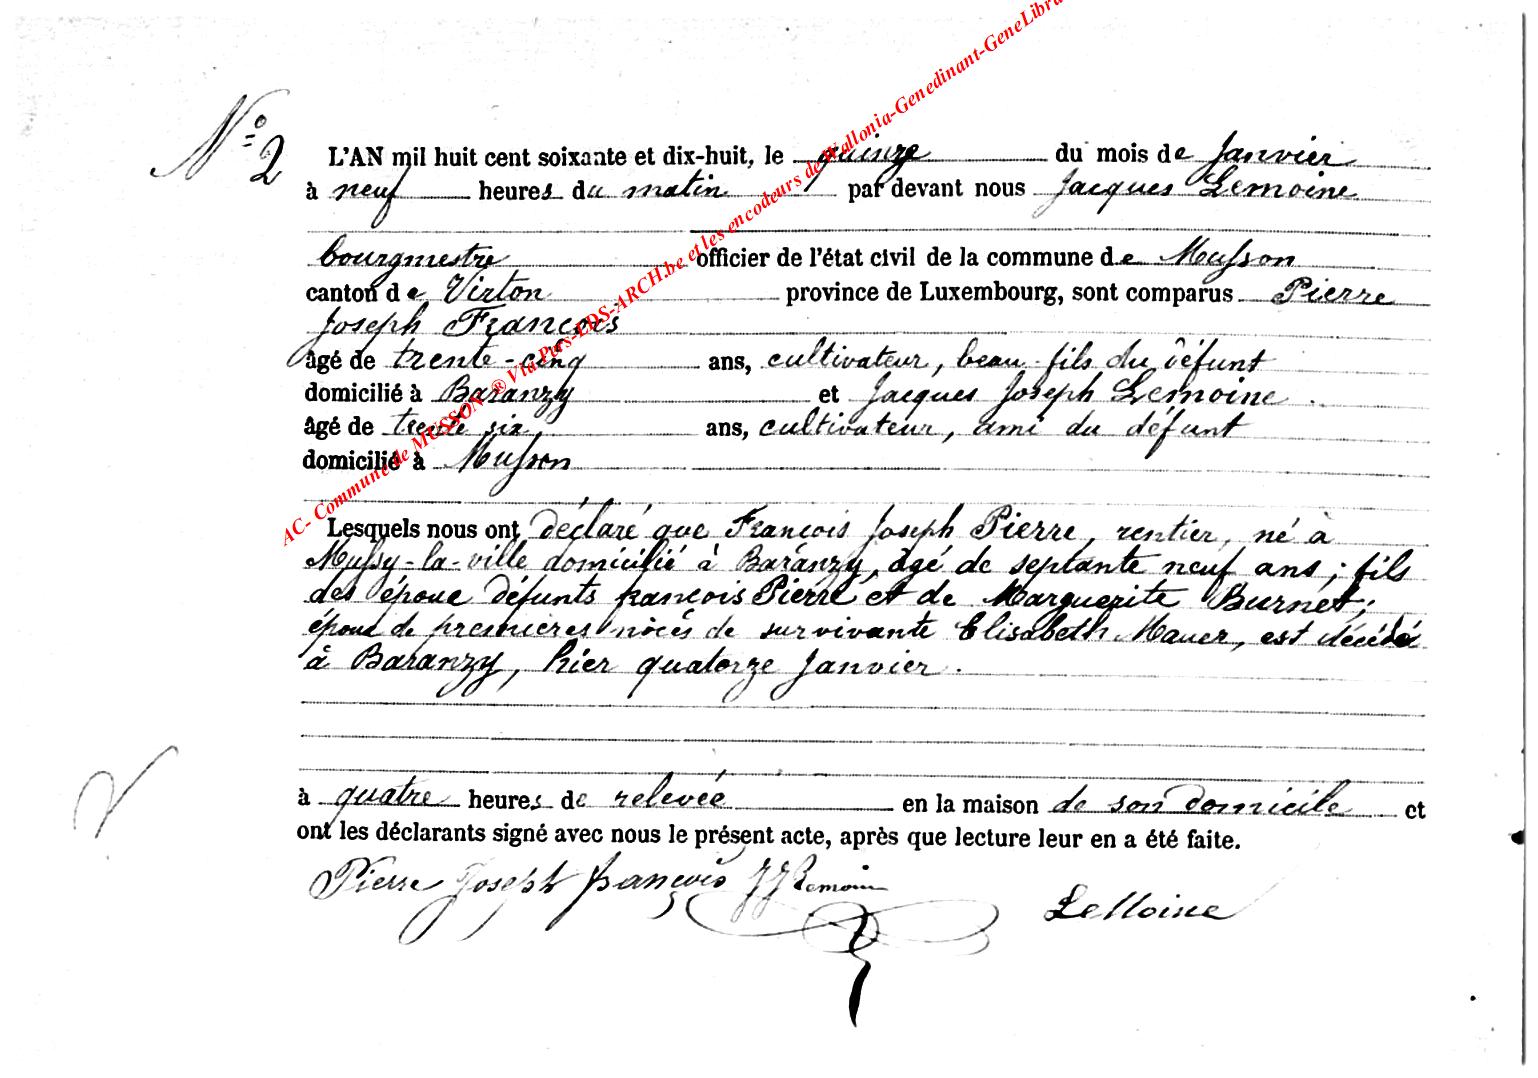 N° 2
L'AN mil huit cent soixante et dix-huit, le quinze du mois de Janvier
à neuf heures du matin par devant nous Jacques Lemoine
bourgmestre officier de l'état civil de la commune de Musson
canton de Virton province de Luxembourg, sont comparus Pierre
Joseph François
âgé de trente-cinq ans, cultivateur, beau-fils du défunt
domicilié à Baranzy et Jacques Joseph Lemoine
âgé de trente six ans, cultivateur, ami du défunt
domicilié à Musson
Lesquels nous ont déclaré que François Joseph Pierre, rentier, né à
Mussy-la-ville domicilié à Baranzy, âgé de septante neuf ans; fils
des époux défunts françois Pierre et de Marguerite Burnet;
époux de premières noces de survivante Elisabeth Mauer, est décédé
à Baranzy, hier quatorze Janvier.
à quatre heures de relevée en la maison de son domicile et
ont les déclarants signé avec nous le présent acte, après que lecture leur en a été faite.
Pierre Joseph françois JJLemoine LeMoine
AC- Commune de MUSSON ® Via Pars-EDS-ARCH.be et les encodeurs de Wallonia-Genedinant-GeneLibra